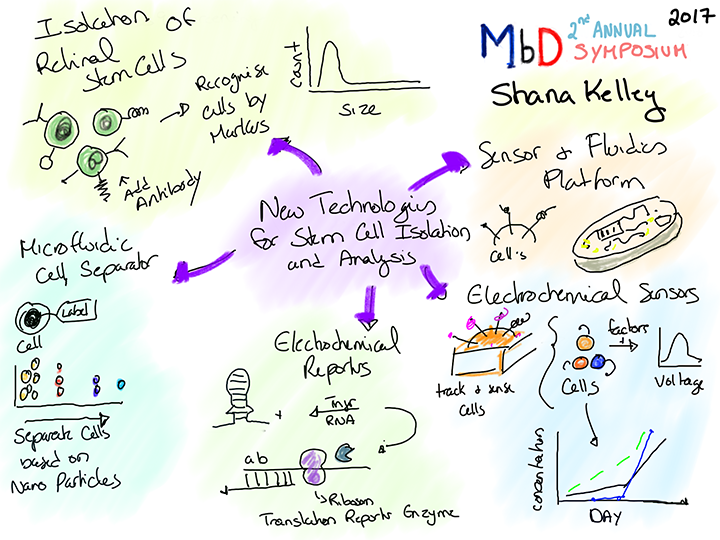 2017
MbD 2nd ANNUAL
SYMPOSIUM
Shana Kelley
New Technologies
for Stem Cell Isolation
and Analysis
Isolation of
Retinal
Stem Cells
Recognise
cells by
Markers
Add
Antibody
Count
Size
Sensor & Fluidics
Platform
Cell's
Microfluidic
Cell Separator
Label
Cell
Separate Cells
based on
Nano Particles
Electrochemical
Reports
+
RNA
ab
Translation Reports Enzyme
Electrochemical Sensors
track & sense
Cells
Cells
factors
+
Voltage
concentration
DAY